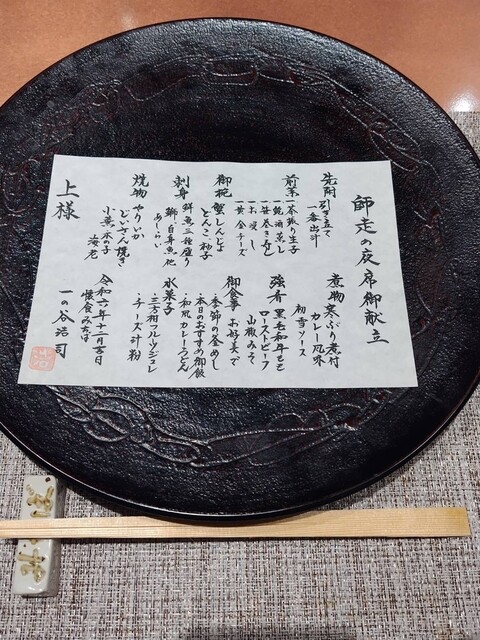 師走の夜席御献立
先附 引き立て
一番出汁
前菜 一本張り生子
一鮑酒蒸し
一笹巻き寿し
一お浸し
一黄金チーズ
御椀 蟹しんじょ
どんこ 柚子
刺身 鮮魚三種盛り
鮪・白身魚他
あしらい
焼物 やりいか
どいさん焼き
小蕪 木の子
海老
上様
煮物 寒ぶり煮付
カレー風味
初雪ソース
強肴 黒毛和牛もも
ローストビーフ
山椒みそ
御食事 お好みで
・季節の釜めし
・本日のおすすめ御飯
・和風カレーうどん
水菓子
・三方柑フルーツジュレ
・チーズ汁粉
令和六年十二月吉日
懐食みちば
一の谷浩司